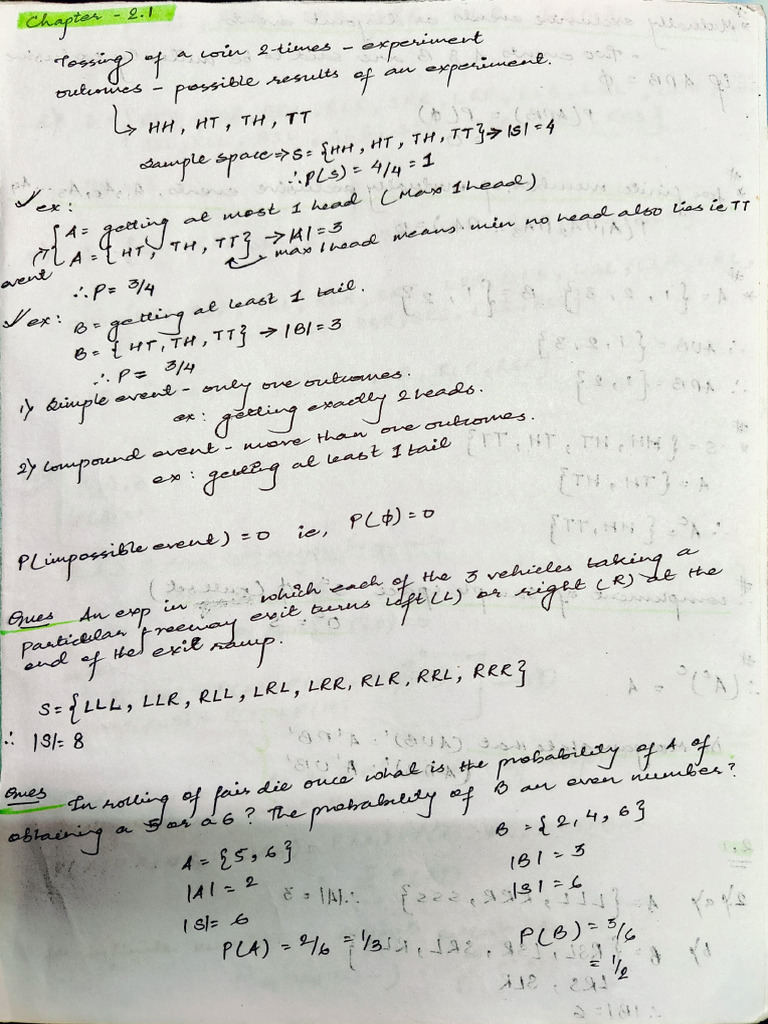 Chapter - 2.1
Tossing of a coin 2-times - experiment
outcomes - possible results of an experiment.
↳ HH, HT, TH, TT
sample space ⇒ S = {HH, HT, TH, TT} → |S| = 4
∴ P(S) = 4/4 = 1
✓ ex:
A = getting at most 1 head (Max 1 head)
A = {HT, TH, TT} → |A| = 3
event
max 1 head means min no head also lies ie TT
∴ P = 3/4
✓ ex: B = getting at least 1 tail.
B = {HT, TH, TT} → |B| = 3
∴ P = 3/4
1) Simple event - only one outcomes.
ex: getting exactly 2 heads.
2) Compound event - more than one outcomes.
ex: getting at least 1 tail
P(impossible event) = 0 ie, P(ϕ) = 0
Ques An exp in which each of the 3 vehicles taking a
particular freeway exit turns left (L) or right (R) at the
end of the exit ramp.
S = {LLL, LLR, RLL, LRL, LRR, RLR, RRL, RRR}
∴ |S| = 8
Ques In rolling of fair die once what is the probability of A of
obtaining a 5 or a 6? The probability of B an even number?
A = {5, 6}
|A| = 2
|S| = 6
P(A) = 2/6 = 1/3
B = {2, 4, 6}
|B| = 3
|S| = 6
P(B) = 3/6
= 1/2